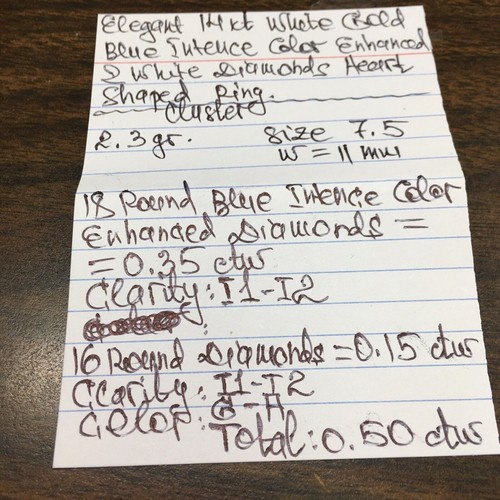 Elegant 14 kt White Gold
Blue Intence Color Enhanced
& White Diamonds Heart
Shaped Ring.
Cluster
2.3 gr. Size 7.5
W = 11 mm
18 Round Blue Intencie Color
Enhanced Diamonds =
= 0.35 ctw
Clarity: I1-I2
16 Round Diamonds = 0.15 ctw
Clarity: I1-I2
Color: G-H
Total: 0.50 ctw